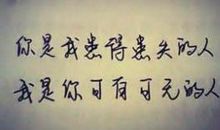 你是我患得患失的人
我是你可有可无的人